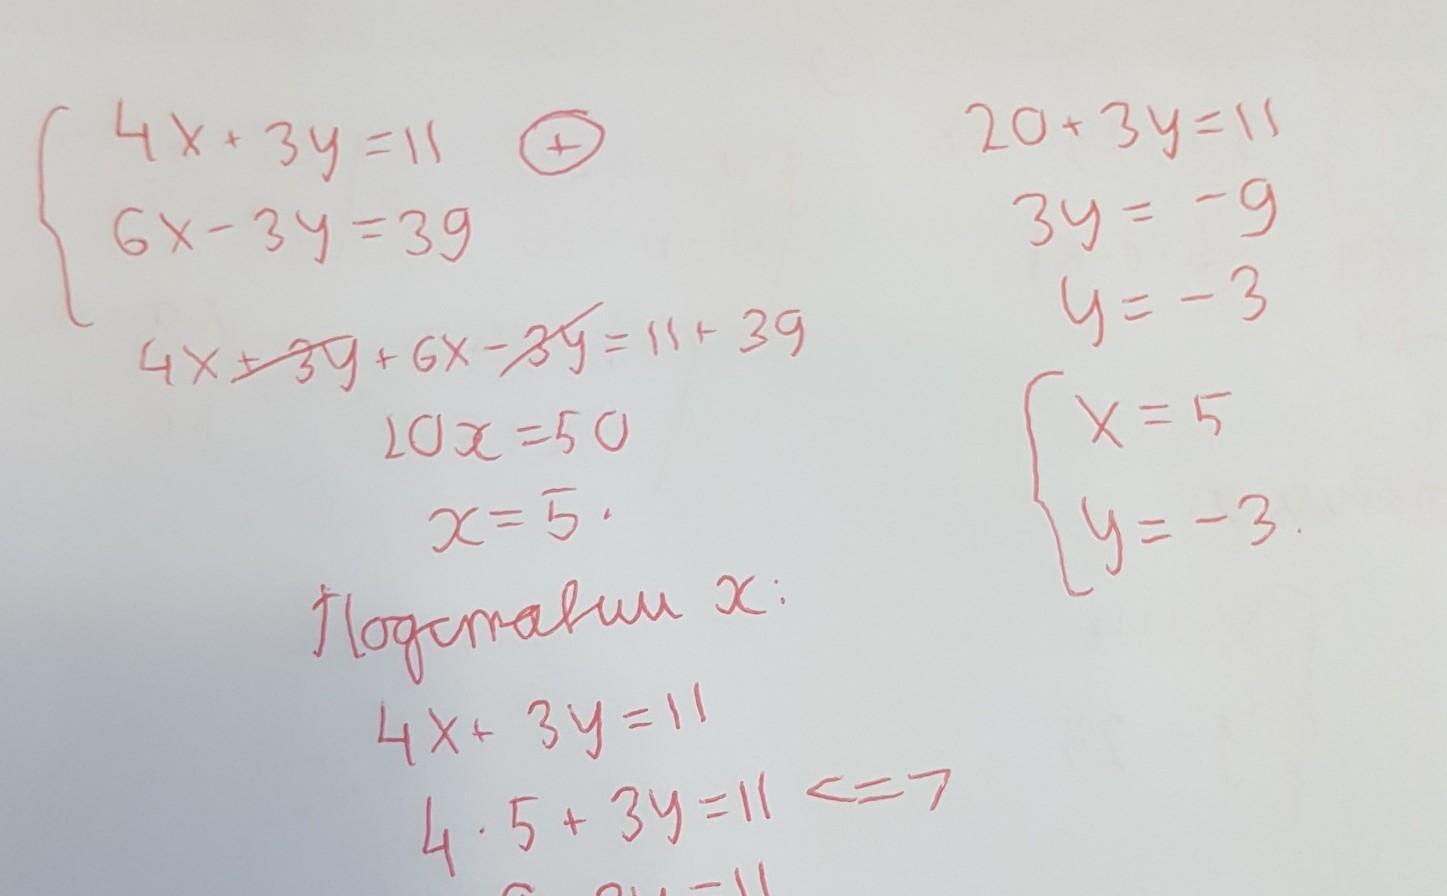 4x + 3y = 11 (+)
6x - 3y = 39
4x + 3y + 6x - 3y = 11 + 39
10x = 50
x = 5.
Подставим x:
4x + 3y = 11
4 · 5 + 3y = 11 <=>
20 + 3y = 11
3y = -9
y = -3
x = 5
y = -3.